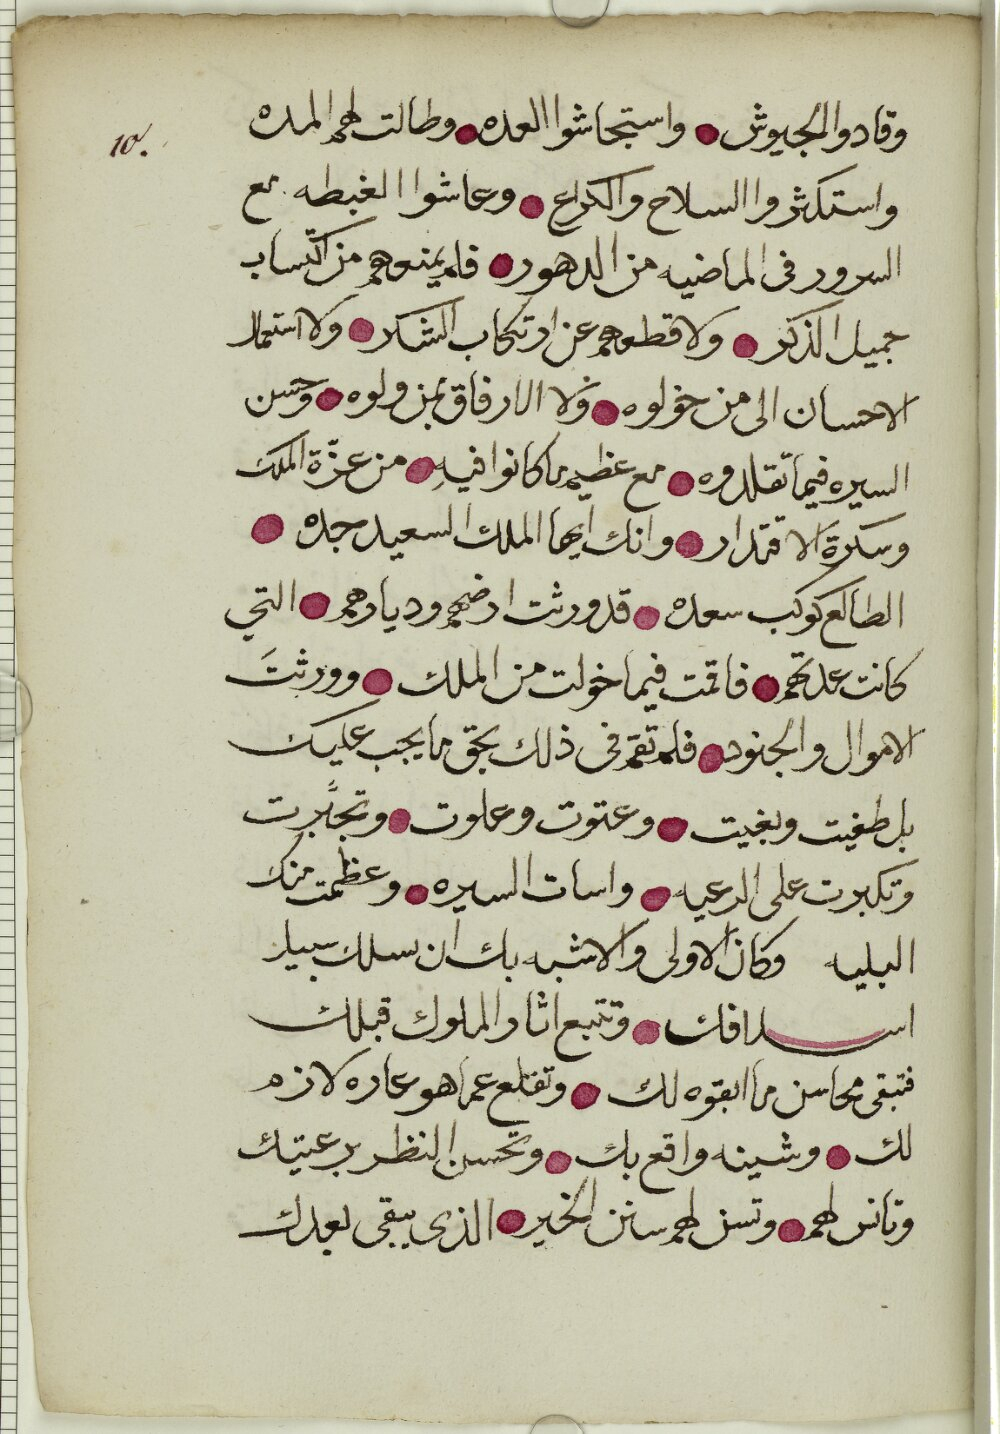 10.
وقادوا الجيوش ● واستجاشوا العده ● وطالت لهم المده
واستكثروا السلاح والكراع ● وعاشوا الغبطه مع
السرور فى الماضيه من الدهور ● فلم يمنعهم من اكتساب
جميل الذكر ● ولا قطعهم عن ارتكاب الشكر ● ولا استعمال
الاحسان الى من خولوه ● ولا الارفاق بمن ولوه ● وحسن
السيره فيما تقلدوه ● مع عظيم ما كانوا فيه ● من عزّة الملك
وسكرة الاقتدار ● وانك ايها الملك السعيد جده ●
الطالع كوكب سعده ● قد ورثت ارضهم وديارهم ● التي
كانت عدتهم ● فاقمت فيما خولت من الملك ● وورثتَ
الاموال والجنود ● فلم تقم فى ذلك بحق ما يجب عليك
بل طغيت وبغيت ● وعتوت وعلوت ● وتجبّرت
وتكبرت على الرعيه ● واسات السيره ● وعظمت منك
البليه وكان الاولى والاشبه بك ان تسلك سبيل
اسلافك ● وتتبع اثار الملوك قبلك
فتبقى محاسن ما ابقوه لك ● وتقلع عما هو عاره لازم
لك ● وشينه واقع بك ● وتحسن النظر برعيتك
وتانس لهم ● وتسن لهم سنن الخير ● الذى يبقى بعدك